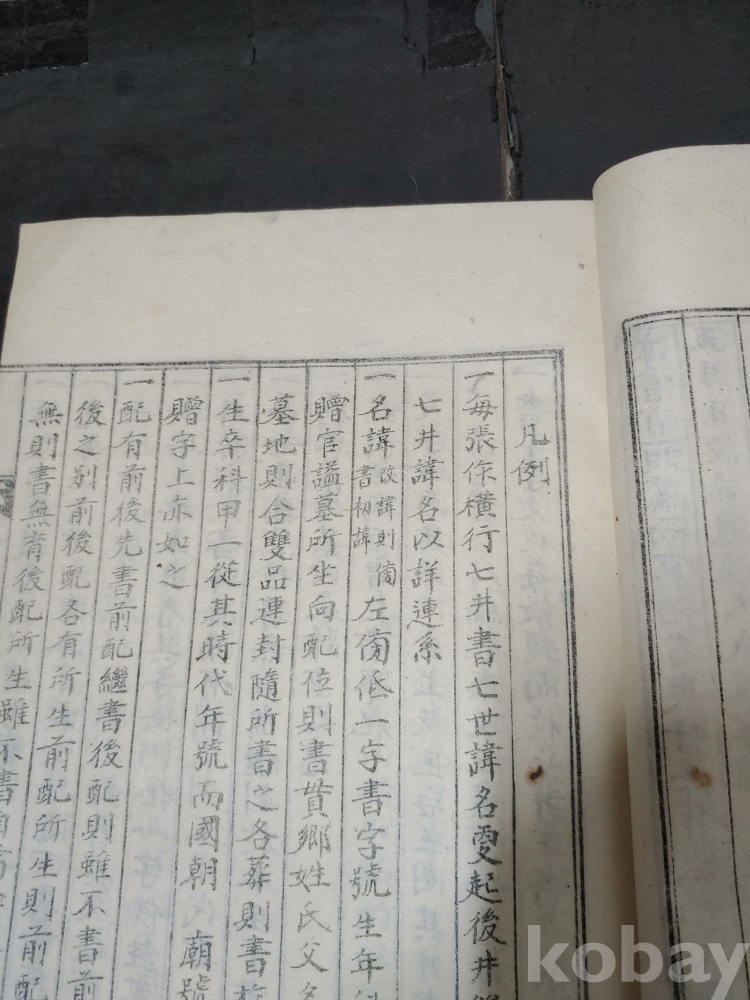 凡例
一每張作橫行七井書七世諱名更起後井
七井諱名以詳連系
一名諱改諱則傍書初諱左傍低一字書字號生年
贈官謚墓所坐向配位則書貫鄕姓氏父名
墓地則合雙品連封隨所書之各葬則書
一生卒科甲一從其時代年號而國朝 廟號
贈字上亦如之
一配有前後先書前配繼書後配則雖不書前
後之别前後配各有所生前配所生則前配
無則書無育後配所生雖不書
kobay